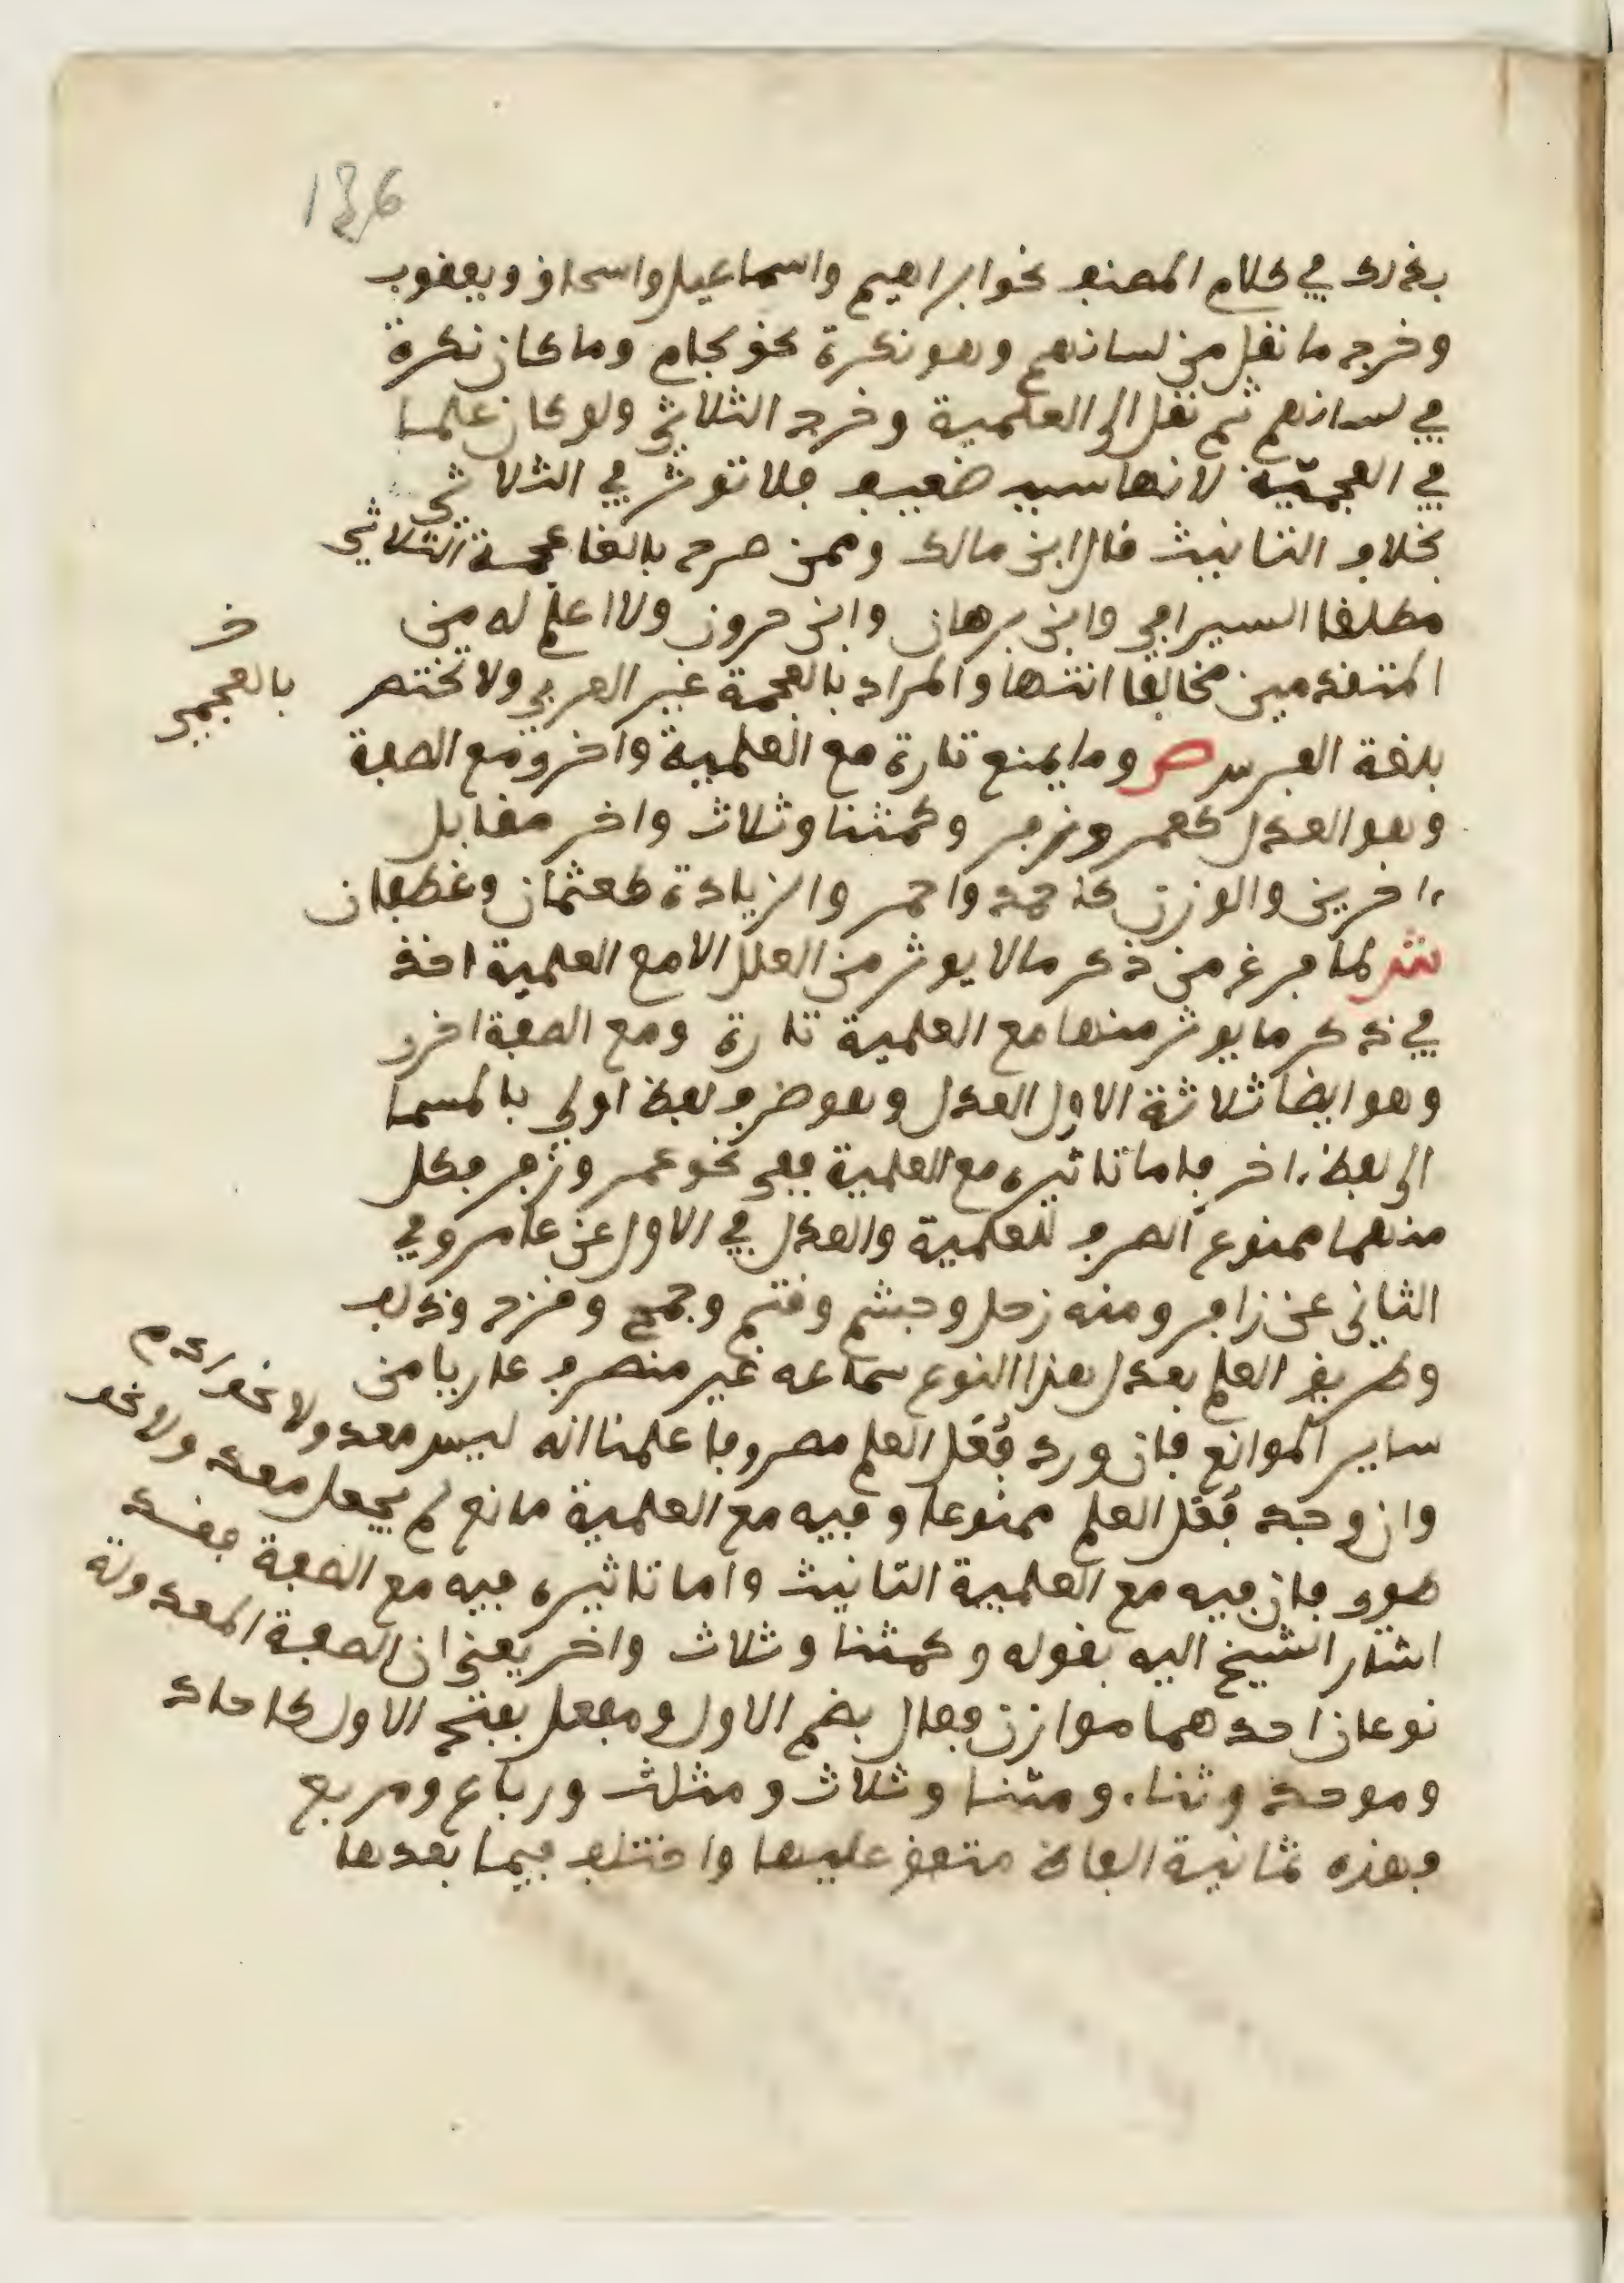 136
بذلك في كلام المصنف نحو ابراهيم واسماعيل واسحاق ويعقوب
وخرج ما نقل من لسانهم وهو نكرة نحو لجام وما كان نكرة
في لسانهم ثم نقل الى العلمية وخرج الثلاثي ولو كان علما
في العجمية لانها سبب ضعيف فلا تؤثر في الثلاثي
بخلاف التانيث قال ابن مالك وممن صرح بالغا عجمة الثلاثي
مطلقا السيرافي وابن برهان وابن خروف ولا اعلم له من
المتقدمين مخالفا انتها والمراد بالعجمة غير العربي ولا تختص
بلغة الفرس ص وما يمنع تارة مع العلمية واخرى مع الصفة
وهو العدل كعمر وزفر وكمثنا وثلاث واخر مقابل
ءاخرين والوزن كاحمد واحمر والزيادة كعثمان وغطفان
ش لما فرغ من ذكر ما لا يوثر من العلل الا مع العلمية اخذ
في ذكر ما يوثر منها مع العلمية تارة ومع الصفة اخرى
وهو ايضا ثلاثة الاول العدل وهو صرف لفظ اولى بالمسما
الى لفظ ءاخر فاما تاثيره مع العلمية ففي نحو عمر وزفر فكل
منهما ممنوع الصرف للعلمية والعدل في الاول عن عامر وفي
الثاني عن زافر ومنه زحل وجشم وقثم وجمح وقزح ودلف
وطريق العلم بعدل هذا النوع سماعه غير منصرف عاريا من
ساير الموانع فان ورد فُعَل العلم مصروفا علمنا انه ليس معدولا نحو ادد
وان وجد فُعَل العلم ممنوعا وفيه مع العلمية مانع لم يجعل معدولا نحو
طوى فان فيه مع العلمية التانيث واما تاثيره فيه مع الصفة فقد
اشار الشيخ اليه بقوله وكمثنا وثلاث واخر يعني ان الصفة المعدولة
نوعان احدهما موازن فعال بضم الاول ومفعل بفتح الاول كاحاد
وموحد وثناء ومثنا وثلاث ومثلث ورباع ومربع
وهذه ثمانية الفاظ متفق عليها واختلف فيما بعدها
بالعجمي